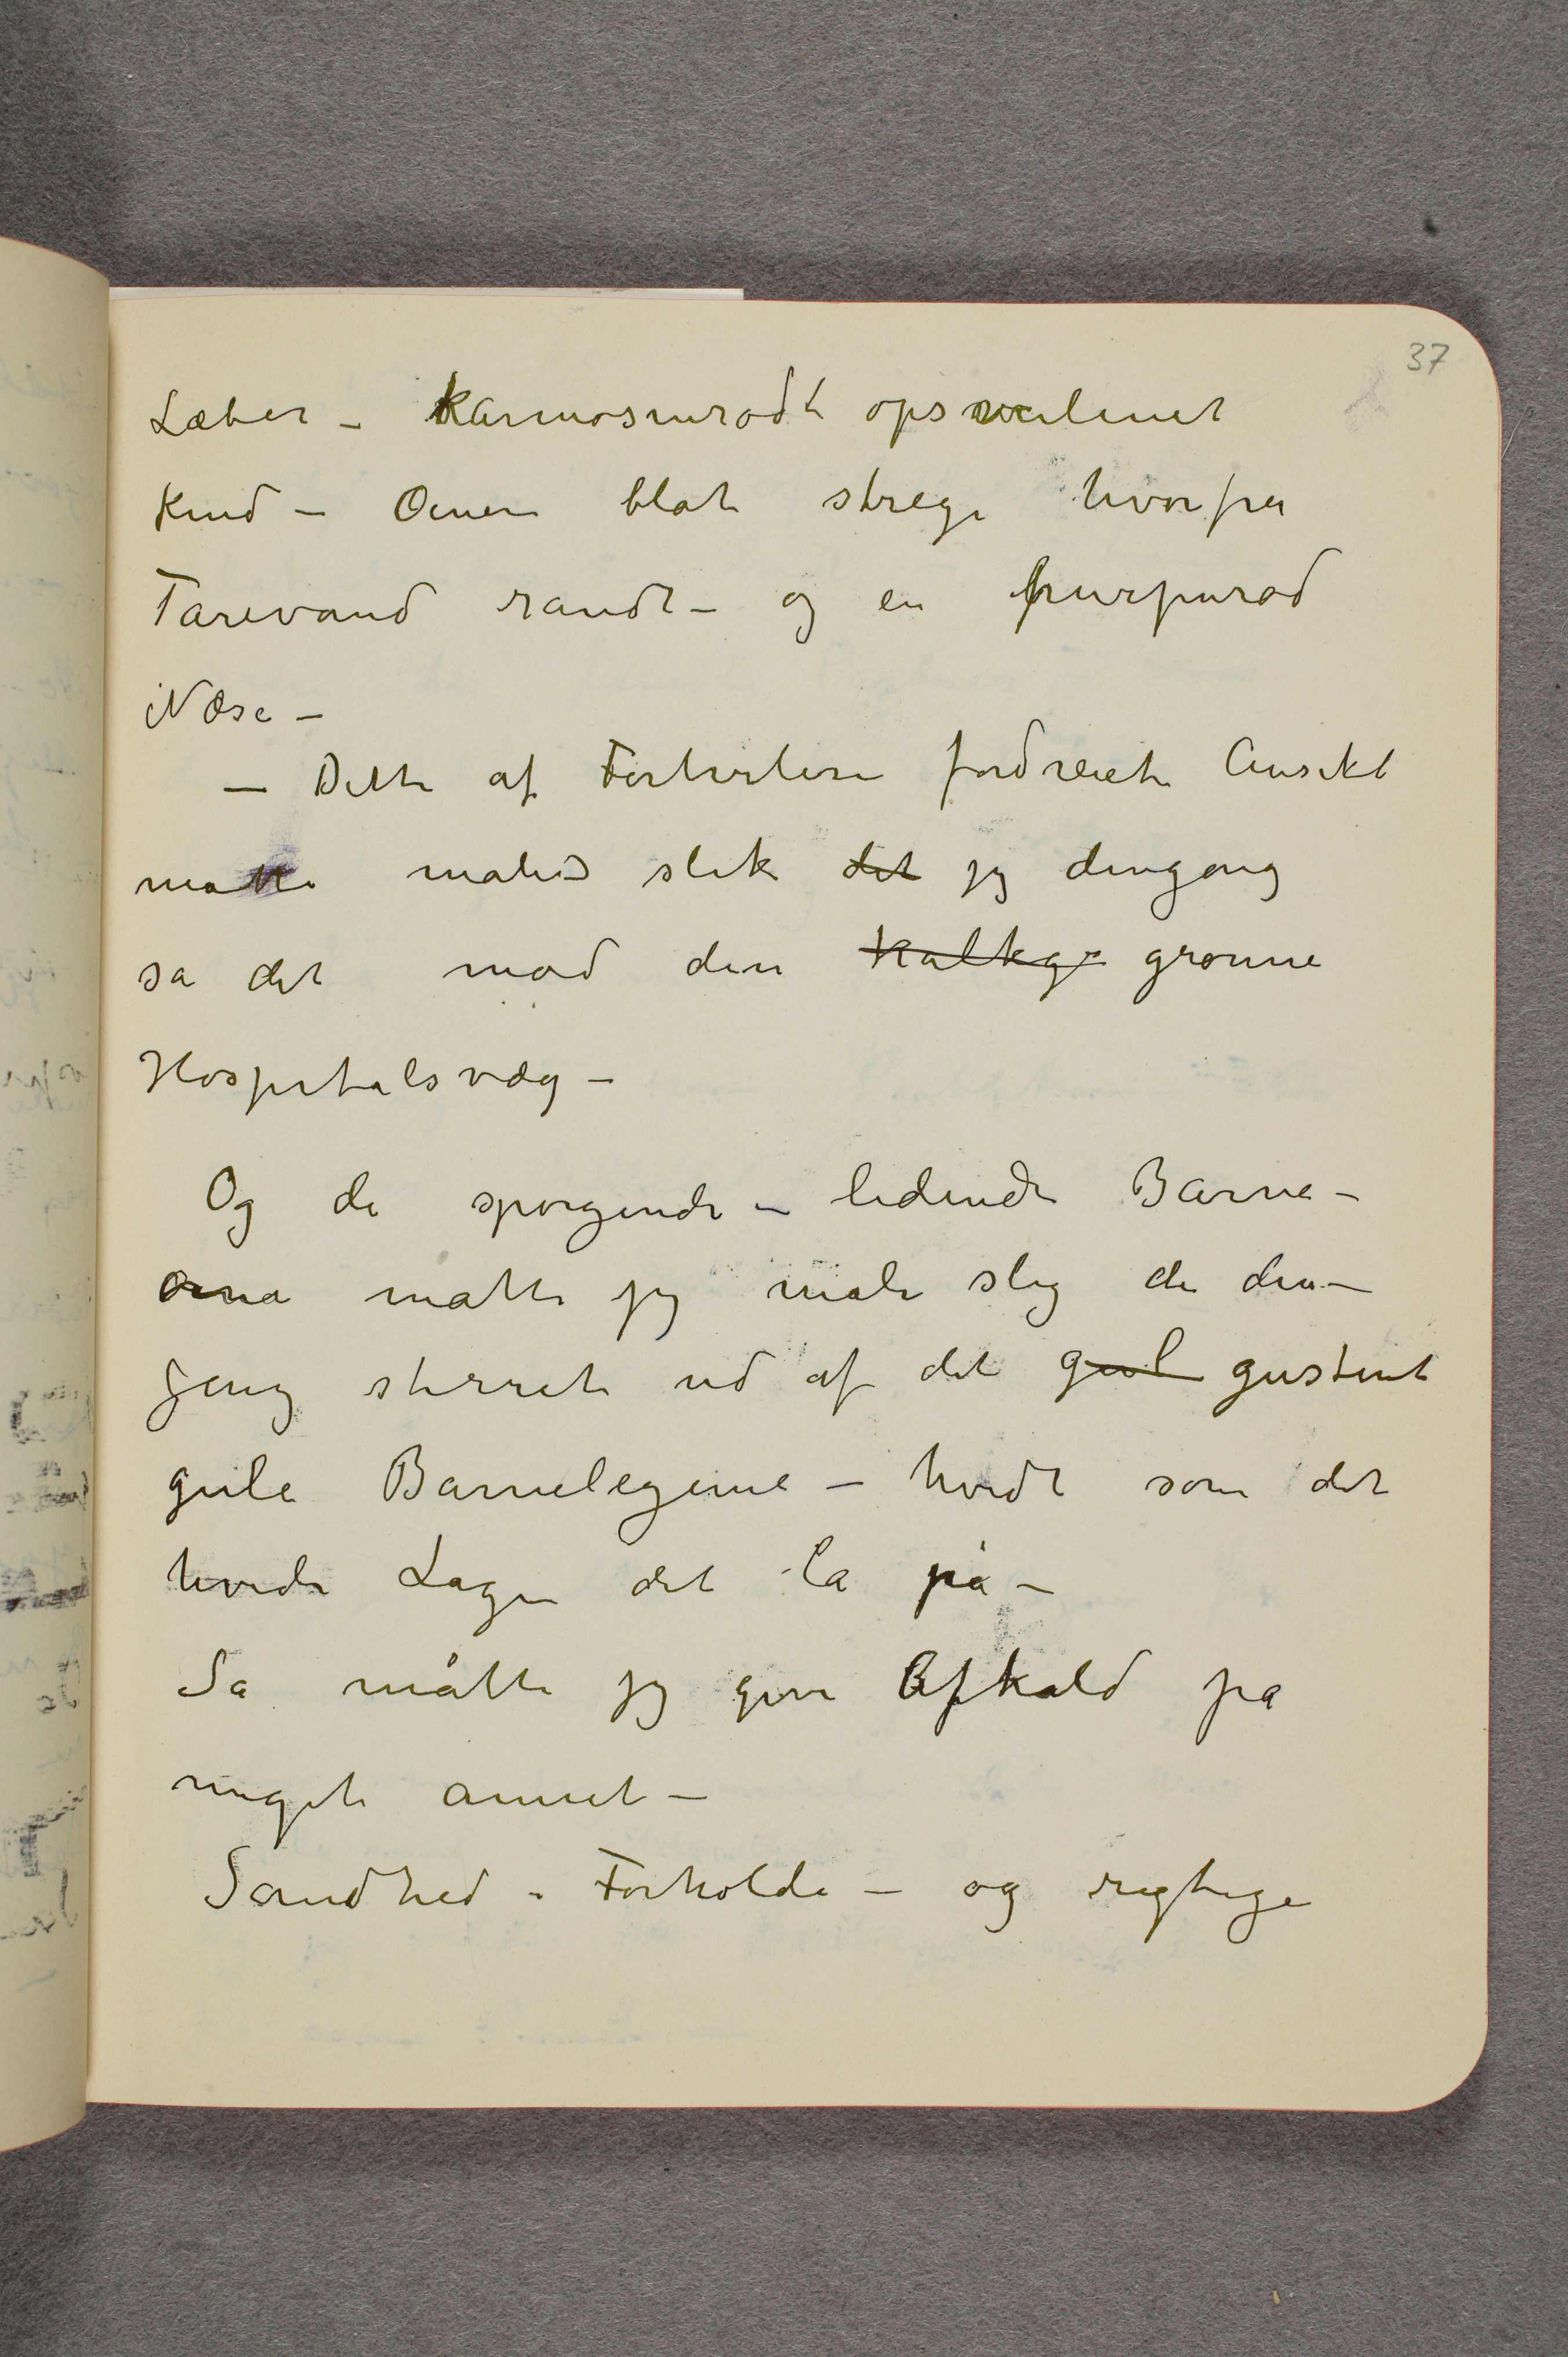 37
Læber – karmosinrødt opsvulmet
Kind – Øinene blåt strege hvorfra
Tårevand randt – og en purpurød
Næse –
– Dette af Fortvilelse fordreiete Ansikt
måtte males slik det jeg dengang
så det mod den Kalkg grønne
Hospitalsvæg –
Og de spørgende – lidende Barne–
øine måtte jeg male slig de den–
gang stirret ud af det gul gustent
gule Barnelegeme – hvidt som det
hvide Lagen det lå på –
Så måtte jeg give Afkald på
meget annet –
Sandhed i Forholde – og rigtige